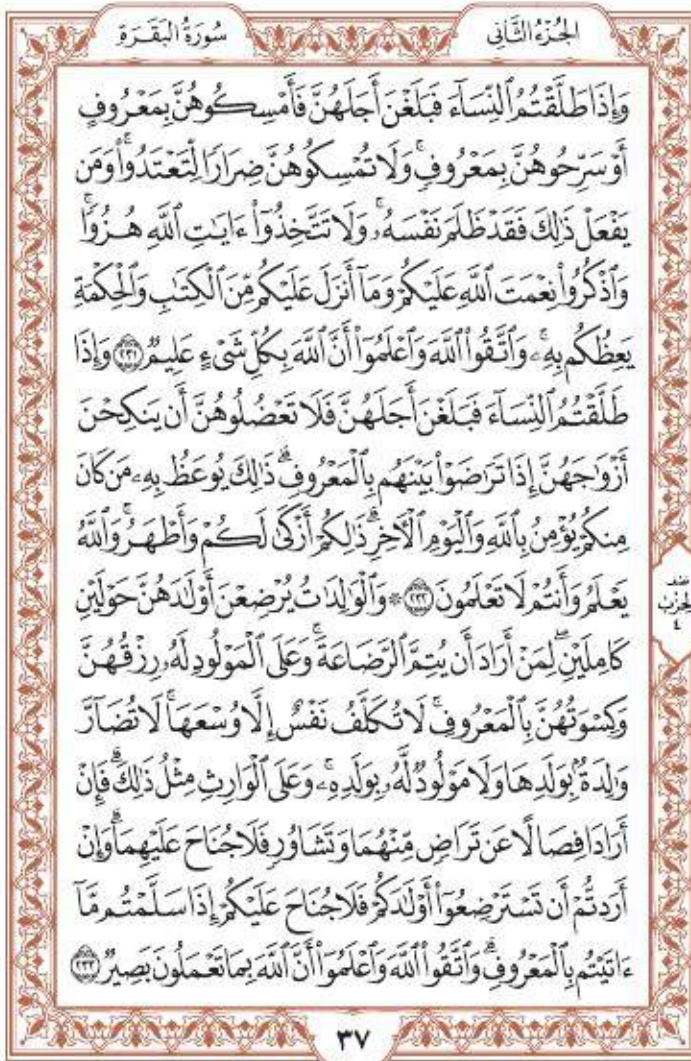 الجُزْءُ الثَّانِى
سُورَةُ البَقَرَةِ
وَإِذَا طَلَّقْتُمُ ٱلنِّسَآءَ فَبَلَغْنَ أَجَلَهُنَّ فَأَمْسِكُوهُنَّ بِمَعْرُوفٍ
أَوْ سَرِّحُوهُنَّ بِمَعْرُوفٍۚ وَلَا تُمْسِكُوهُنَّ ضِرَارًا لِّتَعْتَدُوا۟ۚ وَمَن
يَفْعَلْ ذَٰلِكَ فَقَدْ ظَلَمَ نَفْسَهُۥۚ وَلَا تَتَّخِذُوٓا۟ ءَايَٰتِ ٱللَّهِ هُزُوًاۚ
وَٱذْكُرُوا۟ نِعْمَتَ ٱللَّهِ عَلَيْكُمْ وَمَآ أَنزَلَ عَلَيْكُم مِّنَ ٱلْكِتَٰبِ وَٱلْحِكْمَةِ
يَعِظُكُم بِهِۦۚ وَٱتَّقُوا۟ ٱللَّهَ وَٱعْلَمُوٓا۟ أَنَّ ٱللَّهَ بِكُلِّ شَىْءٍ عَلِيمٌ ٢٣١ وَإِذَا
طَلَّقْتُمُ ٱلنِّسَآءَ فَبَلَغْنَ أَجَلَهُنَّ فَلَا تَعْضُلُوهُنَّ أَن يَنكِحْنَ
أَزْوَٰجَهُنَّ إِذَا تَرَٰضَوْا۟ بَيْنَهُم بِٱلْمَعْرُوفِۗ ذَٰلِكَ يُوعَظُ بِهِۦ مَن كَانَ
مِنكُمْ يُؤْمِنُ بِٱللَّهِ وَٱلْيَوْمِ ٱلْءَاخِرِۗ ذَٰلِكُمْ أَزْكَىٰ لَكُمْ وَأَطْهَرُۚ وَٱللَّهُ
يَعْلَمُ وَأَنتُمْ لَا تَعْلَمُونَ ٢٣٢ ۞ وَٱلْوَٰلِدَٰتُ يُرْضِعْنَ أَوْلَٰدَهُنَّ حَوْلَيْنِ
كَامِلَيْنِۖ لِمَنْ أَرَادَ أَن يُتِمَّ ٱلرَّضَاعَةَۚ وَعَلَى ٱلْمَوْلُودِ لَهُۥ رِزْقُهُنَّ
وَكِسْوَتُهُنَّ بِٱلْمَعْرُوفِۚ لَا تُكَلَّفُ نَفْسٌ إِلَّا وُسْعَهَاۚ لَا تُضَآرَّ
وَٰلِدَةٌۢ بِوَلَدِهَا وَلَا مَوْلُودٌ لَّهُۥ بِوَلَدِهِۦۚ وَعَلَى ٱلْوَارِثِ مِثْلُ ذَٰلِكَۗ فَإِنْ
أَرَادَا فِصَالًا عَن تَرَاضٍ مِّنْهُمَا وَتَشَاوُرٍ فَلَا جُنَاحَ عَلَيْهِمَاۗ وَإِنْ
أَرَدتُّمْ أَن تَسْتَرْضِعُوٓا۟ أَوْلَٰدَكُمْ فَلَا جُنَاحَ عَلَيْكُمْ إِذَا سَلَّمْتُم مَّآ
ءَاتَيْتُم بِٱلْمَعْرُوفِۗ وَٱتَّقُوا۟ ٱللَّهَ وَٱعْلَمُوٓا۟ أَنَّ ٱللَّهَ بِمَا تَعْمَلُونَ بَصِيرٌ ٢٣٣
نصف
الحزب
٤
٣٧